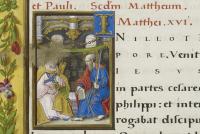 et Pauli. Scdm Mattheum.
Matthei. XVI.
I NILLOT
PORE, Venit
IESVS
in partes cesaree
philippi: et inter
rogabat discipu